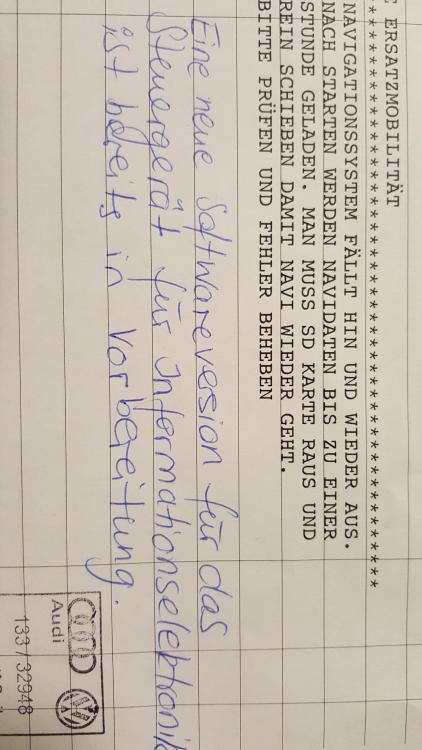 E ERSATZMOBILITÄT
****************************************
NAVIGATIONSSYSTEM FÄLLT HIN UND WIEDER AUS.
NACH STARTEN WERDEN NAVIDATEN BIS ZU EINER
STUNDE GELADEN. MAN MUSS SD KARTE RAUS UND
REIN SCHIEBEN DAMIT NAVI WIEDER GEHT.
BITTE PRÜFEN UND FEHLER BEHEBEN
Eine neue Softwareversion für das
Steuergerät für Informationselektronik
ist bereits in Vorbereitung.
Audi
133 / 32948